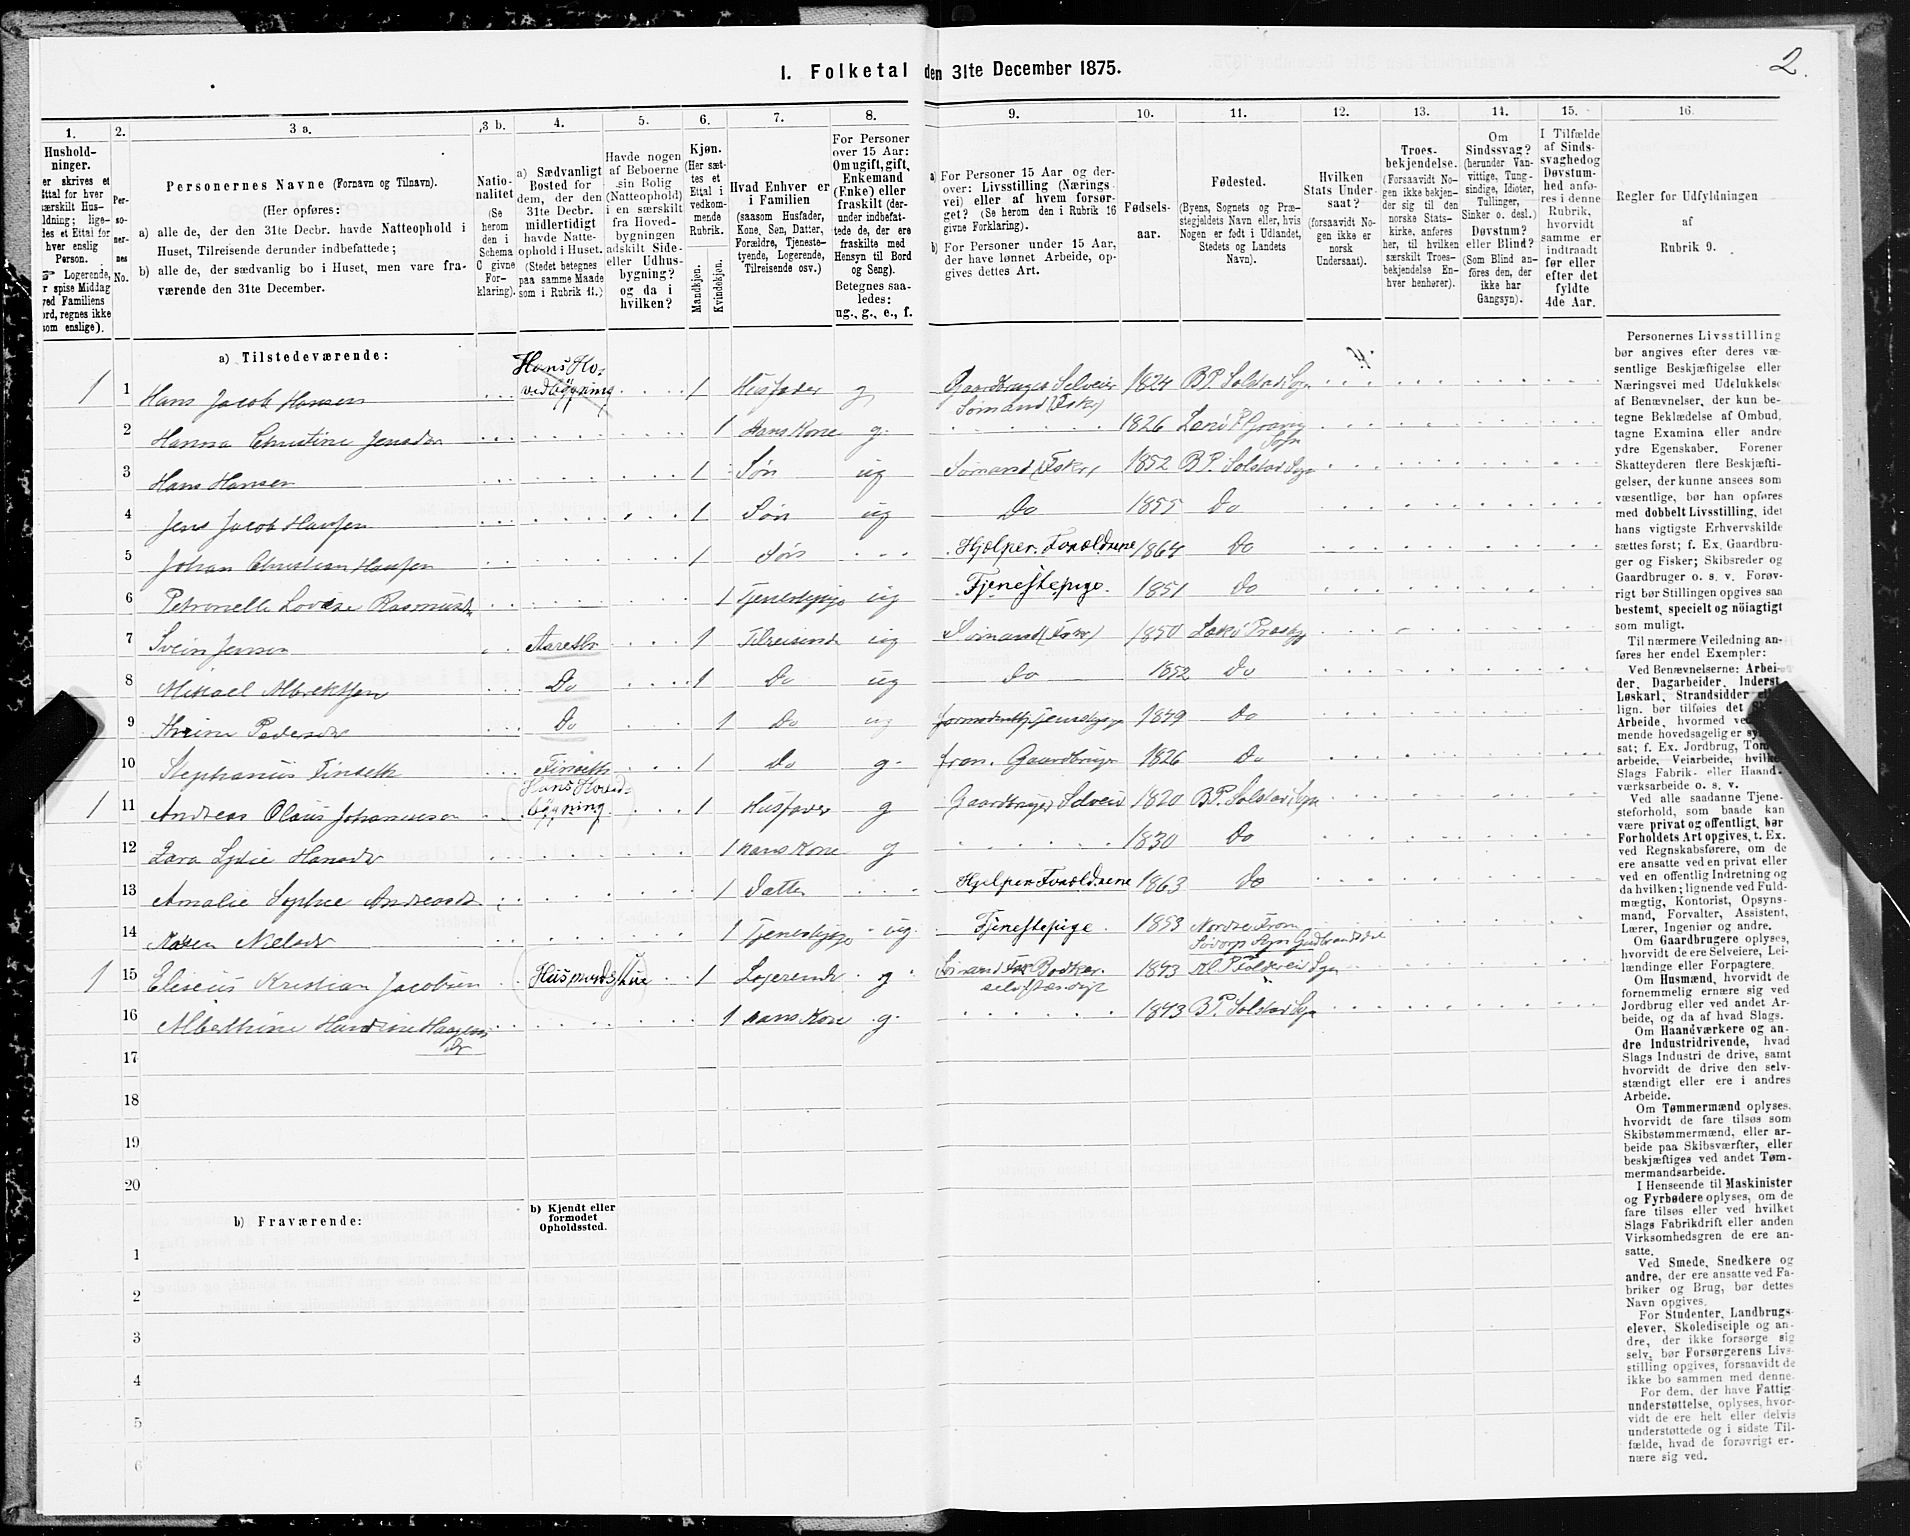 I. Folketal den 31te December 1875.
2.
1. 2. 3 a. 3 b. 4. 5. 6. 7. 8. 9. 10. 11. 12. 13. 14. 15. 16.
Hushold-
ninger.
er skrives et
Ettal for hver
særskilt Hus-
ldning; lige-
les et Ettal for
hver enslig
Person.
Logerende,
r spise Middag
ved Familiens
ord, regnes ikke
som enslige).
Per-
so-
ner-
nes
No.
Personernes Navne (Fornavn og Tilnavn).
(Her opføres:
a) alle de, der den 31te Decbr. havde Natteophold i
Huset, Tilreisende derunder indbefattede;
b) alle de, der sædvanlig bo i Huset, men vare fra-
værende den 31te December.
Natio-
nalitet
(Se
herom
den i
Schema
C givne
For-
klaring).
a) Sædvanligt
Bosted for
dem, der den
31te Decbr.
midlertidigt
havde Natte-
ophold i Huset.
(Stedet betegnes
paa samme Maade
som i Rubrik 11.)
Havde nogen
af Beboerne
sin Bolig
(Natteophold)
i en særskilt
fra Hoved-
bygningen
adskilt Side-
eller Udhus-
bygning?
og da i
hvilken?
Kjøn.
(Her sæt-
tes et
Ettal i
vedkom-
mende
Rubrik.
Mandkjøn.
Kvindekjøn.
Hvad Enhver er
i Familien
(saasom Husfader,
Kone, Søn, Datter,
Forældre, Tjeneste-
tyende, Logerende,
Tilreisende osv.)
For Personer
over 15 Aar:
Om ugift, gift,
Enkemand
(Enke) eller
fraskilt (der-
under indbefat-
tede de, der ere
fraskilte med
Hensyn til Bord
og Seng).
Betegnes saa-
ledes:
ug., g., e., f.
a) For Personer 15 Aar og der-
over: Livsstilling (Nærings-
vei) eller af hvem forsør-
get? (Se herom den i Rubrik 16
givne Forklaring).
b) For Personer under 15 Aar,
der have lønnet Arbeide, op-
gives dettes Art.
Fødsels-
aar.
Fødested.
(Byens, Sognets og Præ-
stegjeldets Navn eller, hvis
Nogen er født i Udlandet,
Stedets og Landets
Navn).
Hvilken
Stats Under-
saat?
(forsaavidt No-
gen ikke er
norsk
Undersaat).
Troes-
bekjendelse.
(Forsaavidt No-
gen ikke bekjen-
der sig til den
norske Stats-
kirke, anføres
her, til hvilken
særskilt Troes-
bekjendelse En-
hver henhører).
Om
Sindssvag?
(herunder Van-
vittige, Tung-
sindige, Idioter,
Tullinger,
Sinker o. desl.)
Døvstum?
eller Blind?
(Som Blind an-
føres den, der
ikke har
Gangsyn).
I Tilfælde
af Sinds-
svaghed og
Døvstum-
hed anfø-
res i denne
Rubrik,
hvorvidt
samme er
indtraadt
før eller
efter det
fyldte
4de Aar.
Regler for Udfyldningen
af
Rubrik 9.
a) Tilstedeværende:
1 1 Hans Jacob Hansen Hans Ho-
vedbygning 1 Husfader g Gaardbruger Selveier
Sömand (Fisker) 1824 B.P. Solstad Sgn
2 Hanna Christine Jensdr 1 Hans Kone g. 1826
3 Hans Hansen 1 Søn ug Sømand (Fisker) 1852 B P. Solstad Sgn
4 Jens Jacob Hansen 1 Søn ug Do 1855 Do
5 Johan Christian Hansen 1 Søn Hjelper Forældrene 1864 Do
6 Petronelle Lovise Rasmusdr 1 Tjenestepige ug Tjenestepige. 1851 Do
7 Svein Jensen 1 Tilreisende ug Sömand (Fisker) 1850
8 Mikael Albrektsen Do 1 Do ug Do 1852 Do
9 Pedersdr Do 1 Do ug 1849 Do
10 Stephanus Finseth Finseth 1 Do g. Gaardbruger 1826 Do
1 11 Andreas Olaus Johannesen Hans Hoved-
bygning 1 Husfader g Gaardbruger Selveier 1820 B.P. Solstad Sgn
12 Lydie Hansdr 1 hans Kone g 1830 Do
13 Amalie Sophie Andreasdr 1 Datter Hjelper Forældrene 1863 Do
14 Karen Nielsdr 1 Tjenestepige ug. Tjenestepige. 1853 Nordre Fron
Södorp Sogn Gudbrandsdal
1 15 Eliseus Kristian Jacobsen Husmandsstue 1 Logerende g Sömand Fisk Bødker
selvstændigt 1843
16 Albertine 1 hans Kone g. 1843 B.P. Solstad Sgn
17
18
19
20
b) Fraværende:
b) Kjendt eller
formodet
Opholdssted.
1
2
3
4
5
6
Personernes Livsstilling
bør angives efter deres væ-
sentlige Beskjæftigelse eller
Næringsvei med Udelukkelse
af Benævnelser, der kun be-
tegne Beklædelse af Ombud,
tagne Examina eller andre
ydre Egenskaber. Forener
Skatteyderen flere Beskjæfti-
gelser, der kunne ansees som
væsentlige, bør han opføres
med dobbelt Livsstilling, idet
hans vigtigste Erhvervskilde
sættes først; f. Ex. Gaardbru-
ger og Fisker; Skibsreder og
Gaardbruger o. s. v. Forøv-
rigt bør Stillingen opgives saa
bestemt, specielt og nöiagtigt
som muligt.
Til nærmere Veiledning an-
føres her endel Exempler:
Ved Benævnelserne: Arbei-
der, Dagarbeider, Inderst,
Løskarl, Strandsidder
lign. bør tilføies det
Arbeide, hvormed
mende hovedsagelig er
sat; f. Ex. Jordbrug,
arbeide, Veiarbeide, hvilke
Slags Fabrik- eller Haand-
værksarbeide o. s. v.
Ved alle saadanne Tjene-
steforhold, som baade kan
være privat og offentligt, bør
Forholdets Art opgives, t. Ex.
ved Regnskabsførere, om de
ere ansatte ved en privat eller
ved en offentlig Indretning og
da hvilken; lignende ved Fuld-
mægtig, Kontorist, Opsyns-
mand, Forvalter, Assistent,
Lærer, Ingeniør og andre.
Om Gaardbrugere oplyses,
hvorvidt de ere Selveiere, Lei-
lændinge eller Forpagtere.
Om Husmænd, hvorvidt de
fornemmelig ernære sig ved
Jordbrug eller ved andet Ar-
beide, og da af hvad Slags.
Om Haandværkere og an-
dre Industridrivende, hvad
Slags Industri de drive, samt
hvorvidt de drive den selv-
stændigt eller ere i andres
Arbeide.
Om Tømmermænd oplyses,
hvorvidt de fare tilsøs som
Skibstømmermænd, eller ar-
beide paa Skibsværfter, eller
beskjæftiges ved andet Tøm-
mermandsarbeide.
I Henseende til Maskinister
og Fyrbødere oplyses, om de
fare tilsøs eller ved hvilket
Slags Fabrikdrift eller anden
Virksomhedsgren de ere an-
satte.
Ved Smede, Snedkere og
andre, der ere ansatte ved Fa-
briker og Brug, bør dettes
Navn opgives.
For Studenter, Landbrugs-
elever, Skoledisciple og an-
dre, der ikke forsørge sig
selv, bør Forsørgerens Livs-
stilling opgives, forsaavidt de
ikke bo sammen med denne.
For dem, der have Fattig-
understøttelse, oplyses, hvor-
vidt de ere helt eller delvis
understøttede og i sidste Til-
fælde, hvad de forøvrigt er-
nære sig ved.